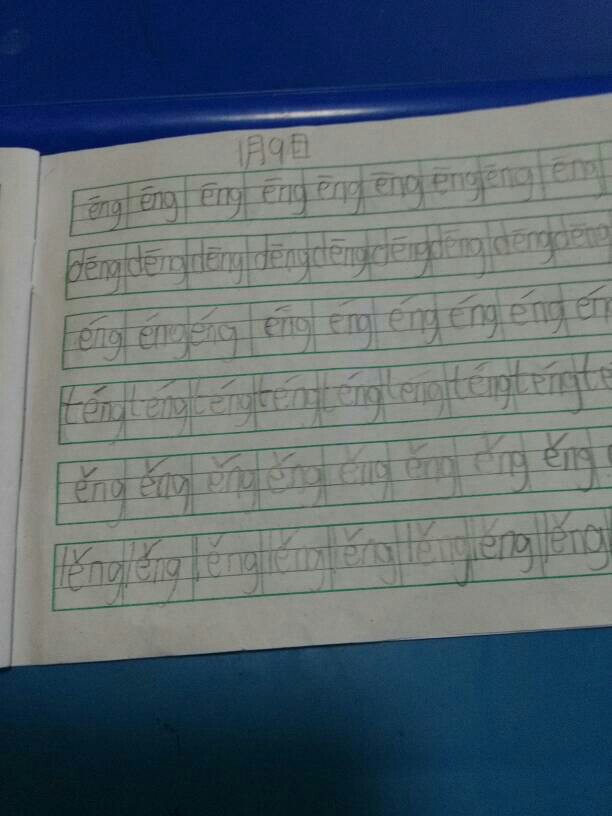 1月9日
ēng ēng ēng ēng ēng ēng ēng ēng ēng
dēng dēng dēng dēng dēng dēng dēng dēng dēng
éng éng éng éng éng éng éng éng én
téng téng téng téng téng téng téng téng té
ěng ěng ěng ěng ěng ěng ěng ěng
lěng lěng lěng lěng lěng lěng lěng lěng